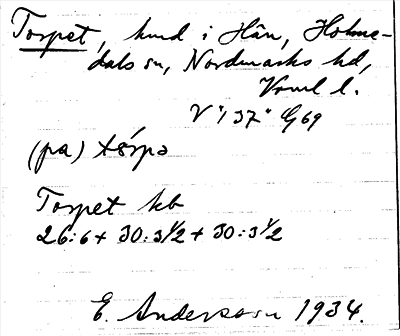 Torpet, hmd i Hån, Holme-
dals sn, Nordmarks hd,
Vrml l.
(pa) tórpə
Torpet kb
26:6 + 30:3 1/2 + 30:3 1/2
E. Andersson 1934.